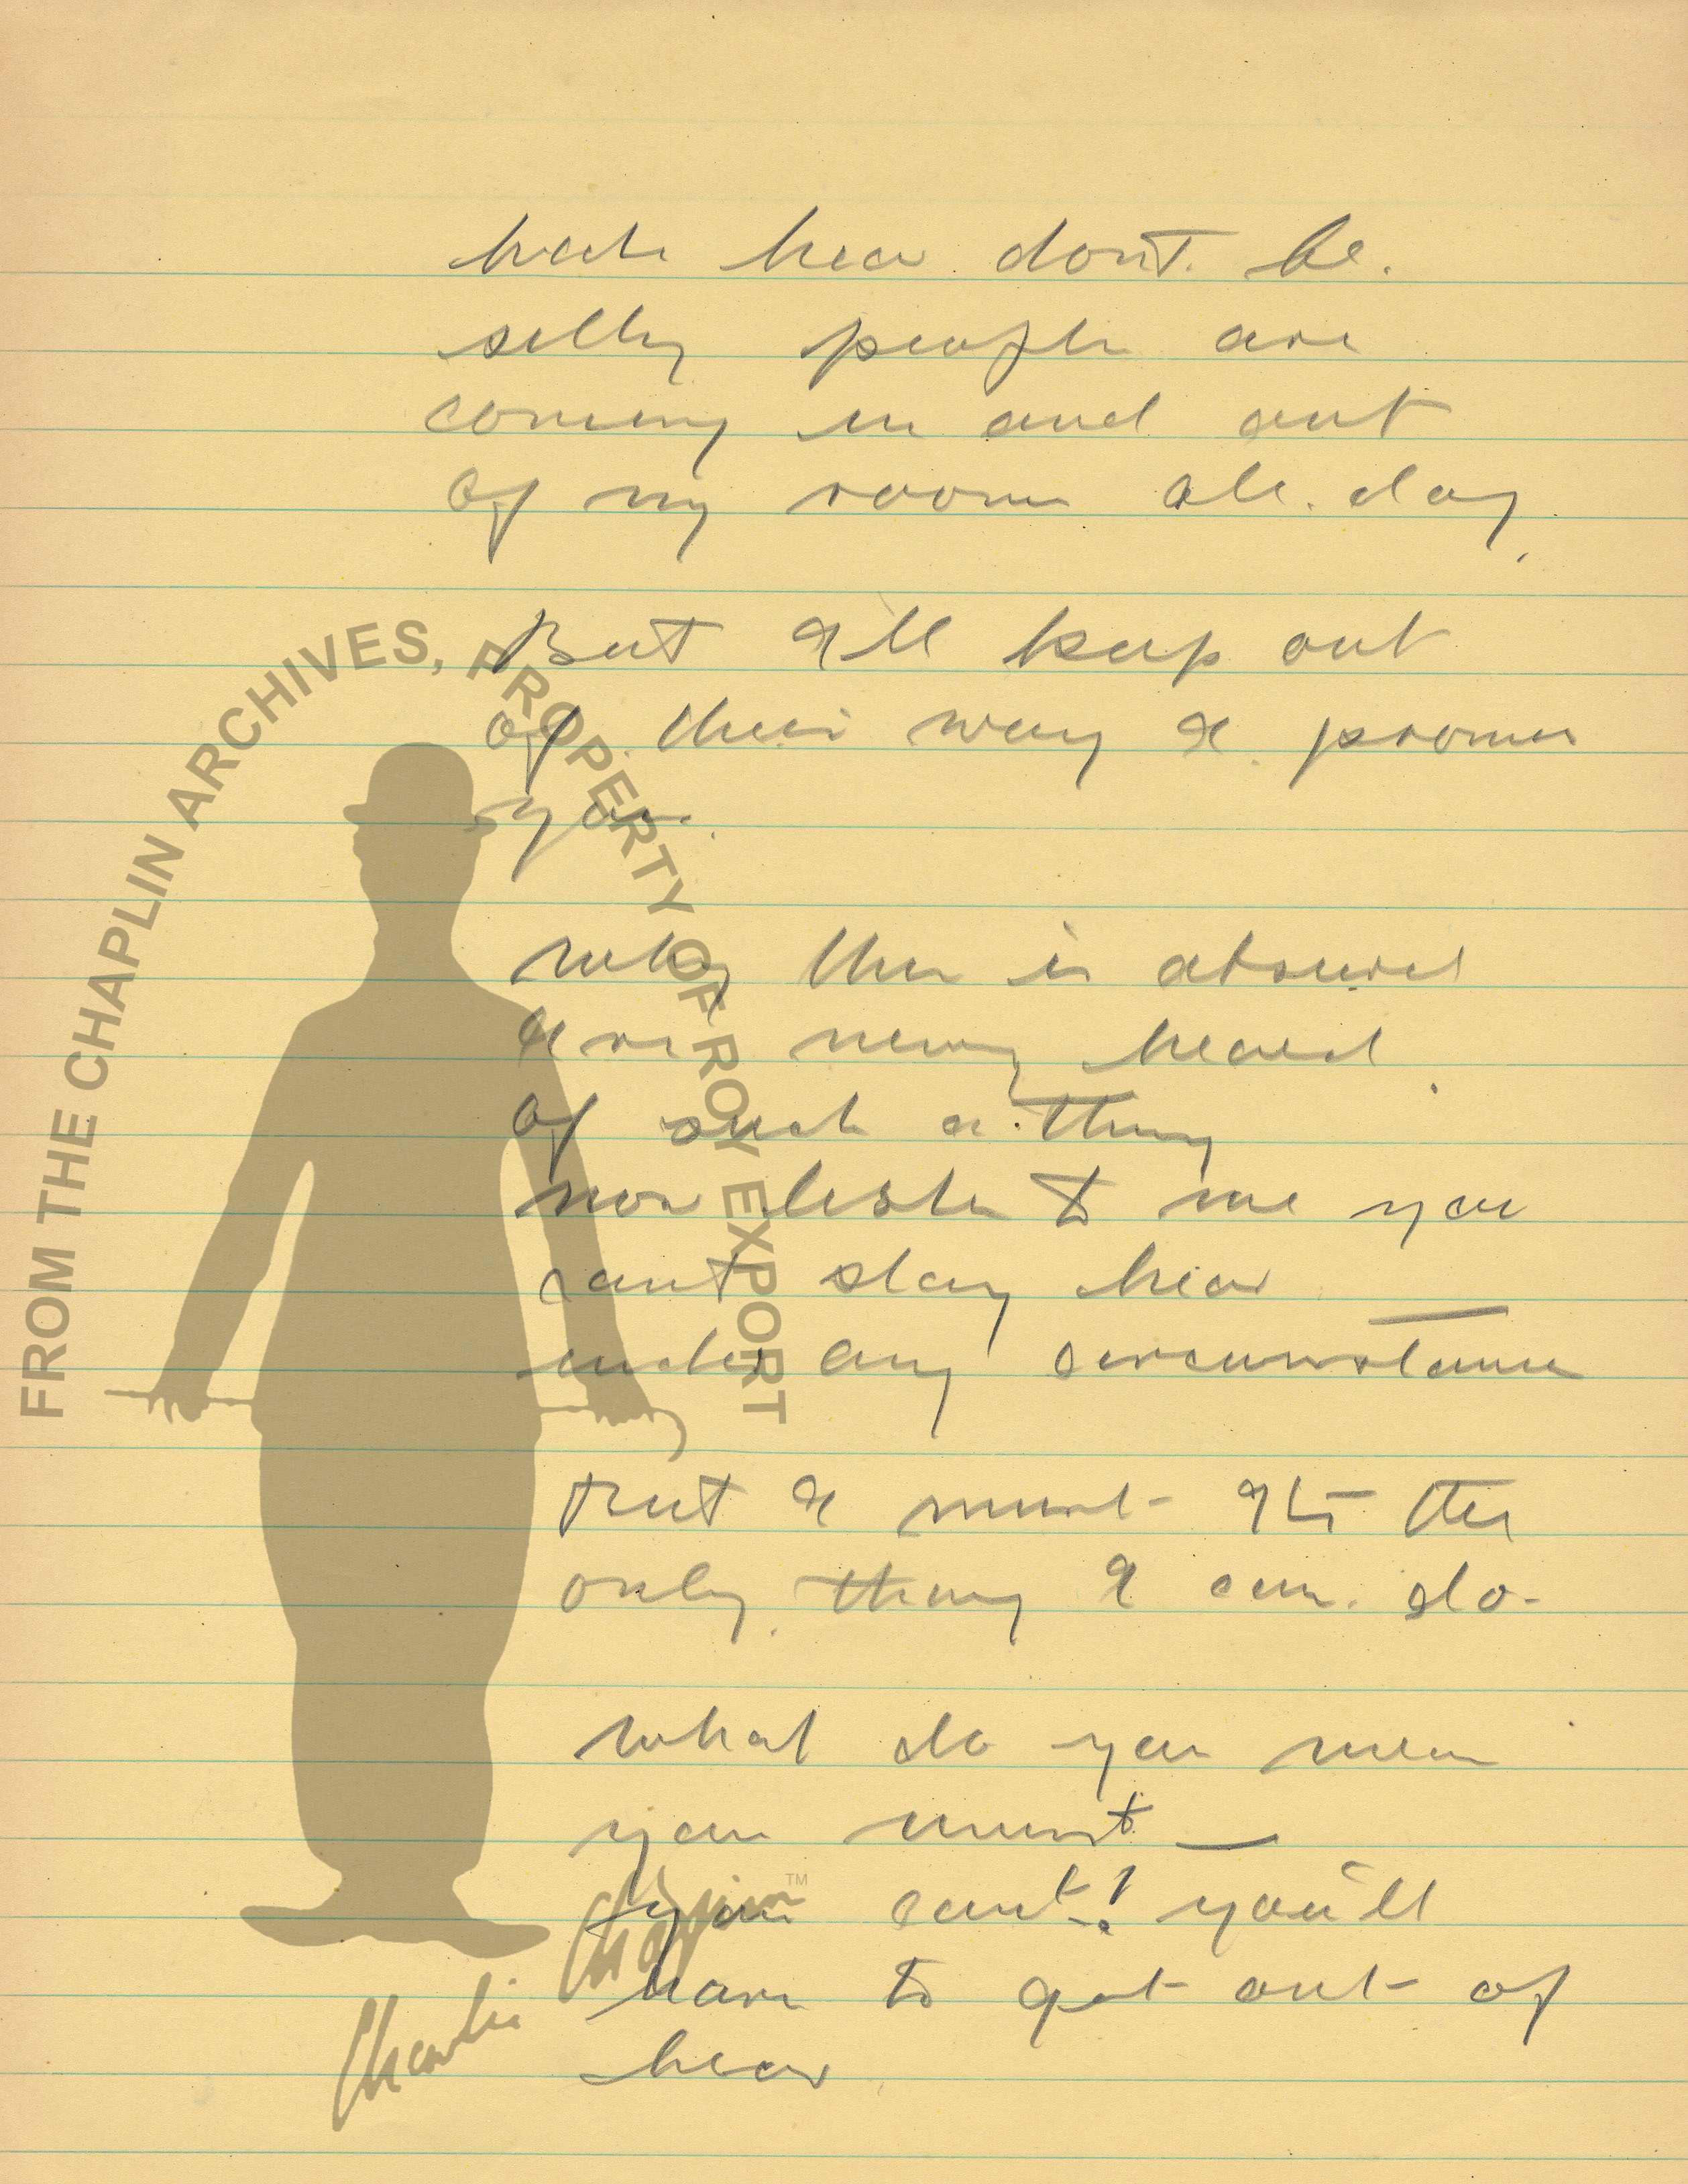 hear don't be.
silly people are
coming in and out
of my room all. day.
But I'll keep out
of their way I promis
you.
why this is absurd
I've never heard
of such a thing
now listen to me you
cant stay hear
under any circumstance
But I must - It the
only thing I can. do -
what do you mean
you must —
you cant! you'll
have to get out of
hear
FROM THE CHAPLIN ARCHIVES, PROPERTY OF ROY EXPORT
Charlie Chaplin ™